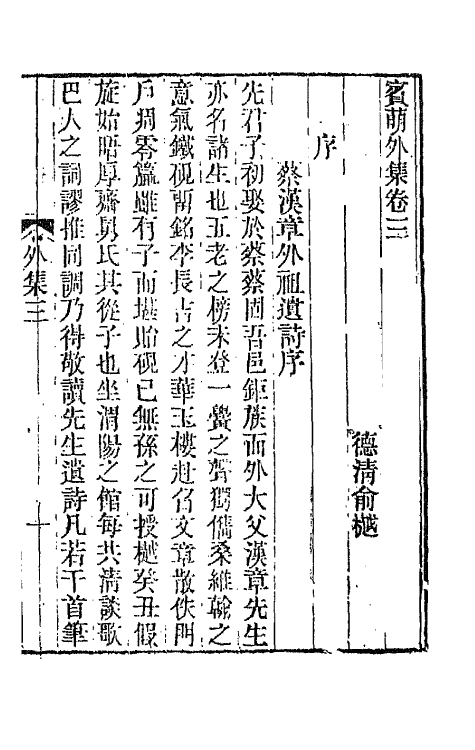 賓萌外集卷三
德清俞樾
序
蔡漢章外祖遺詩序
先君子初娶於蔡蔡固吾邑鉅族而外大父漢章先生
亦名諸生也五老之榜未登一黌之聲獨儁桑維翰之
意氣鐵硯留銘李長吉之才華玉樓赴召文章散佚門
戸凋零籝雖有子而堪貽硯已無孫之可授樾癸丑假
旋始晤厚齋舅氏其從子也坐渭陽之館每共清談歌
巴人之詞謬推同調乃得敬讀先生遺詩凡若干首筆
外集三
一